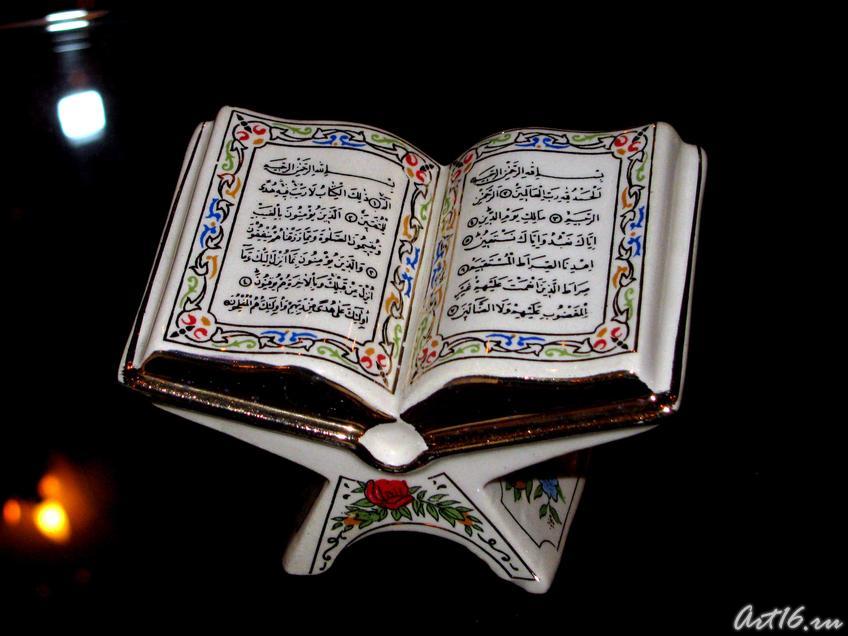 بسم الله الرحمن الرحيم
الحمد لله رب العالمين ١ الرحمن
الرحيم ٢ مالك يوم الدين
اياك نعبد واياك نستعين
اهدنا الصراط المستقيم
صراط الذين انعمت عليهم غير
المغضوب عليهم ولا الضالين
بسم الله الرحمن الرحيم
الم ١ ذلك الكتاب لا ريب فيه هدى
للمتقين ٢ الذين يؤمنون بالغيب
ويقيمون الصلوة ومما رزقناهم ينفقون
٣ والذين يؤمنون بما انزل اليك وما
انزل من قبلك وبالاخرة هم يوقنون ٤
اولئك على هدى من ربهم واولئك هم المفلحون
Art16.ru